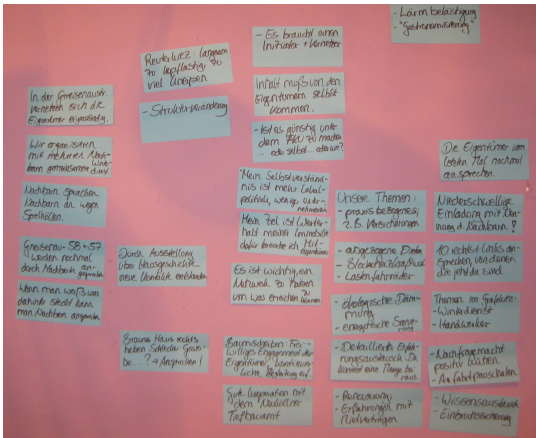 - Lärm belästigung
- "Gastronomisierung"
- Es braucht einen
Initiator + Vernetzer
Reuterkiez: langsam
zu kopflastig, zu
viel Kneipen
- Strukturveränderung
Inhalt muß von den
Eigentümern selbst
kommen.
- Ist es günstig unter
dem zu machen
... oder selbst ... oder wo?
In der Greisenaustr.
vernetzen sich die
Eigentümer eigenständig.
Wir organisieren
mit mehreren Nach-
barn gemeinsamen Winter-
dienst.
Nachbarn sprachen
Nachbarn an wegen
Spielhöllen.
Gneisenau 58 + 57
werden nochmal
durch Nachbarn an-
gesprochen
Wenn man weiß was
dahinter steckt kann
man Nachbarn ansprechen
Durch Ausstellung
über Hausgeschichte
neue Kontakte entstanden
Braunes Haus rechts
neben Schlecker Gewer-
be...? → Ansprechen!
Mein Selbstverständ-
nis ist mehr lokal-
politisch, weniger unter-
nehmerisch
Mein Ziel ist Werter-
halt meiner Immobilie
dafür brauche ich Mit-
eigentümer
Es ist wichtig, ein
Netzwerk zu haben
um was erreichen zu
können
Baumscheiben: Frei-
williges Engagement der
Eigentümer, kontinuier-
liche Begleitung erf.
Gute Kooperation mit
dem Neuköllner
Tiefbauamt
Unsere Themen:
- praxisbezogenes,
z.B. Versicherungen
- abgezogene Dielen
- Blockheizkraftwerk
- Lastenfahrräder
- ökologische Däm-
mung
- energetische Sanierung
- Detaillierter Erfah-
rungsaustausch. Da
kommt eine Menge bei
raus.
- Renovierung
- Erfahrungen mit
Mietverträgen
Die Eigentümer vom
letzten Mal nochmal
ansprechen.
Niederschwellige
Einladung mit
d. Nachbarn?
10 rechts + links an-
sprechen, von denen
die jetzt da sind.
Themen im Grätzkiez:
- Winterdienst
- Handwerker
- Nachfragemacht
positiv nutzen
- Anfahrtpauschalen
- Wissensaustausch
- Einbruchssicherung